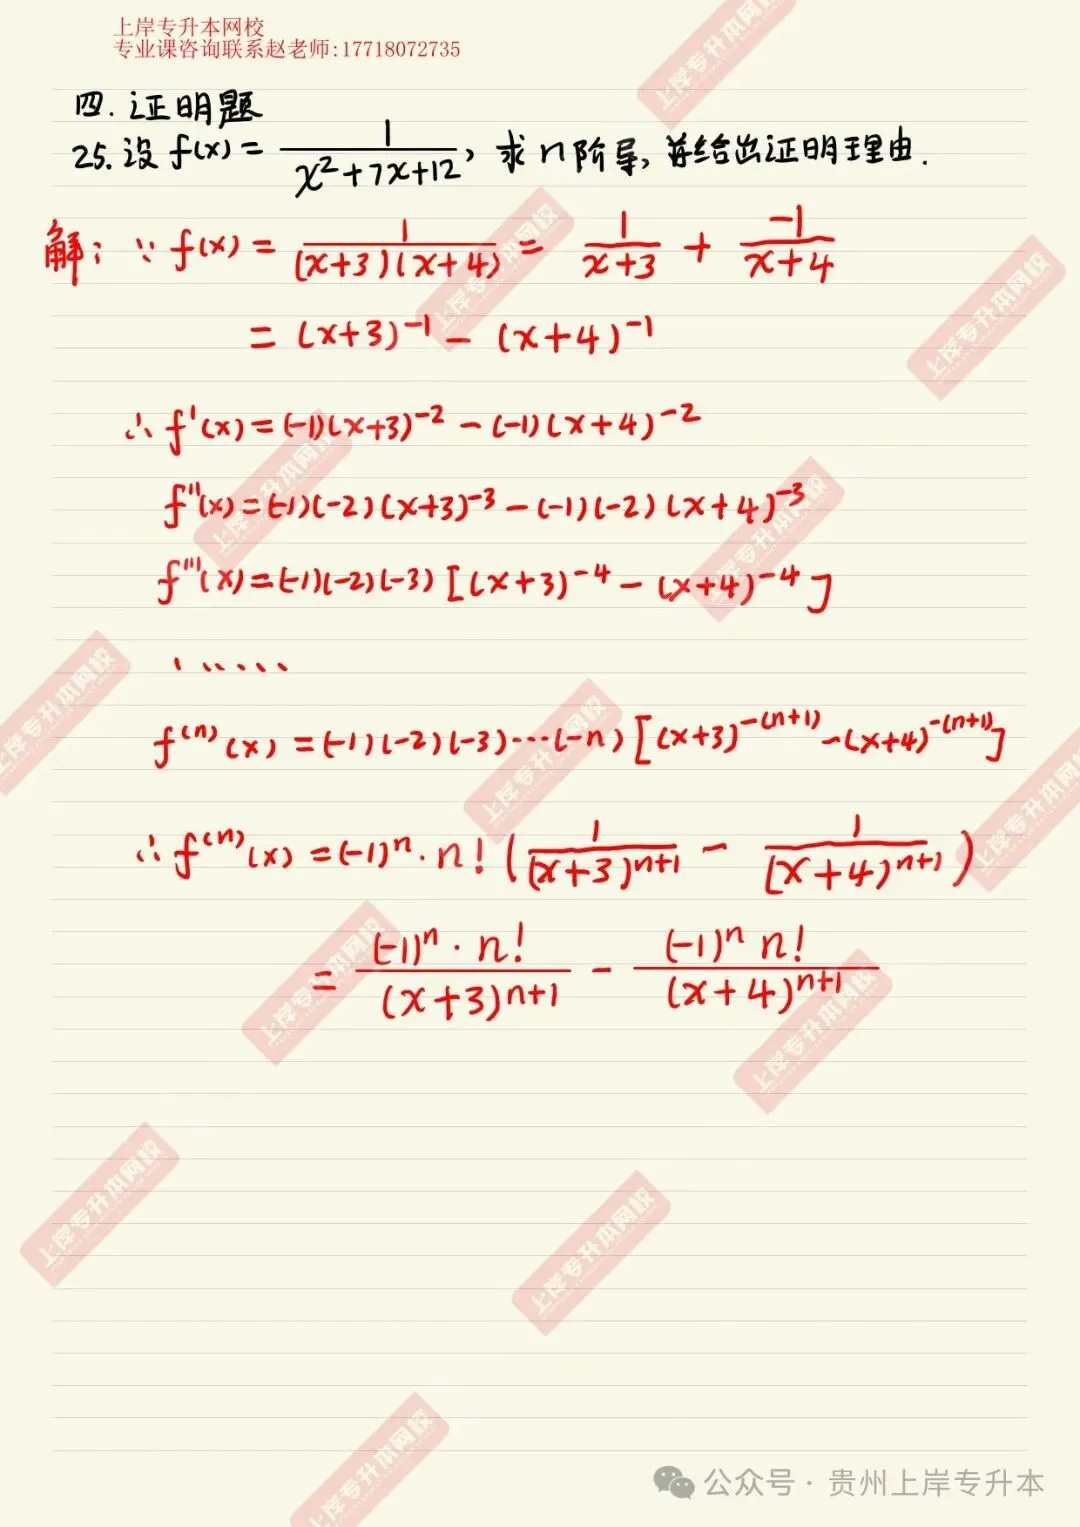 上岸专升本网校
专业课咨询联系赵老师:17718072735
四.证明题
25.设 f(x) = 1/(x²+7x+12), 求n阶导,并给出证明理由.
解: ∵ f(x) = 1/((x+3)(x+4)) = 1/(x+3) + -1/(x+4)
= (x+3)⁻¹ - (x+4)⁻¹
∴ f'(x) = (-1)(x+3)⁻² - (-1)(x+4)⁻²
f''(x) = (-1)(-2)(x+3)⁻³ - (-1)(-2)(x+4)⁻³
f'''(x) = (-1)(-2)(-3)[(x+3)⁻⁴ - (x+4)⁻⁴]
......
f⁽ⁿ⁾(x) = (-1)(-2)(-3)···(-n)[(x+3)^-(n+1) - (x+4)^-(n+1)]
∴ f⁽ⁿ⁾(x) = (-1)ⁿ·n!(1/(x+3)ⁿ⁺¹ - 1/(x+4)ⁿ⁺¹)
= (-1)ⁿ·n!/(x+3)ⁿ⁺¹ - (-1)ⁿ n!/(x+4)ⁿ⁺¹
公众号·贵州上岸专升本